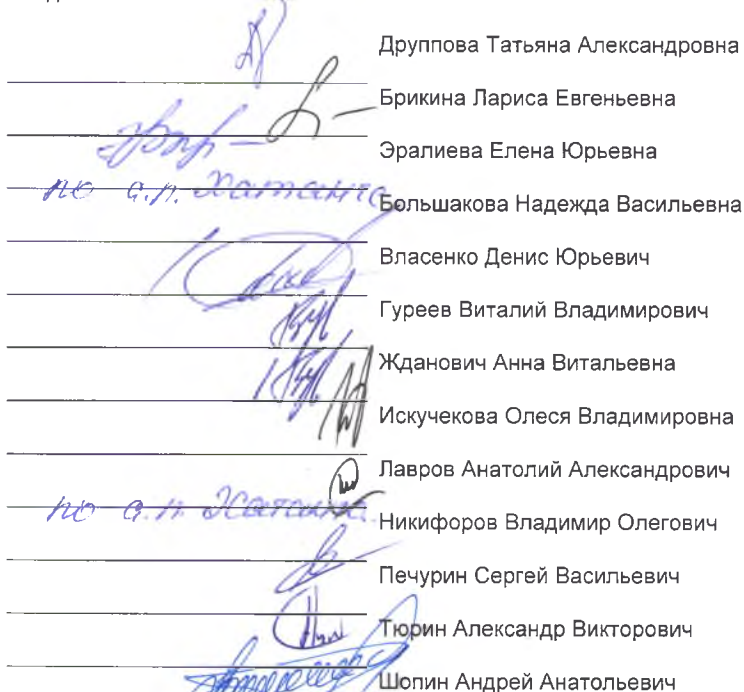 Друппова Татьяна Александровна
Брикина Лариса Евгеньевна
Эралиева Елена Юрьевна
по с.п. Хатанга Большакова Надежда Васильевна
Власенко Денис Юрьевич
Гуреев Виталий Владимирович
Жданович Анна Витальевна
Искучекова Олеся Владимировна
Лавров Анатолий Александрович
по с.п. Хатанга Никифоров Владимир Олегович
Печурин Сергей Васильевич
Тюрин Александр Викторович
Шопин Андрей Анатольевич